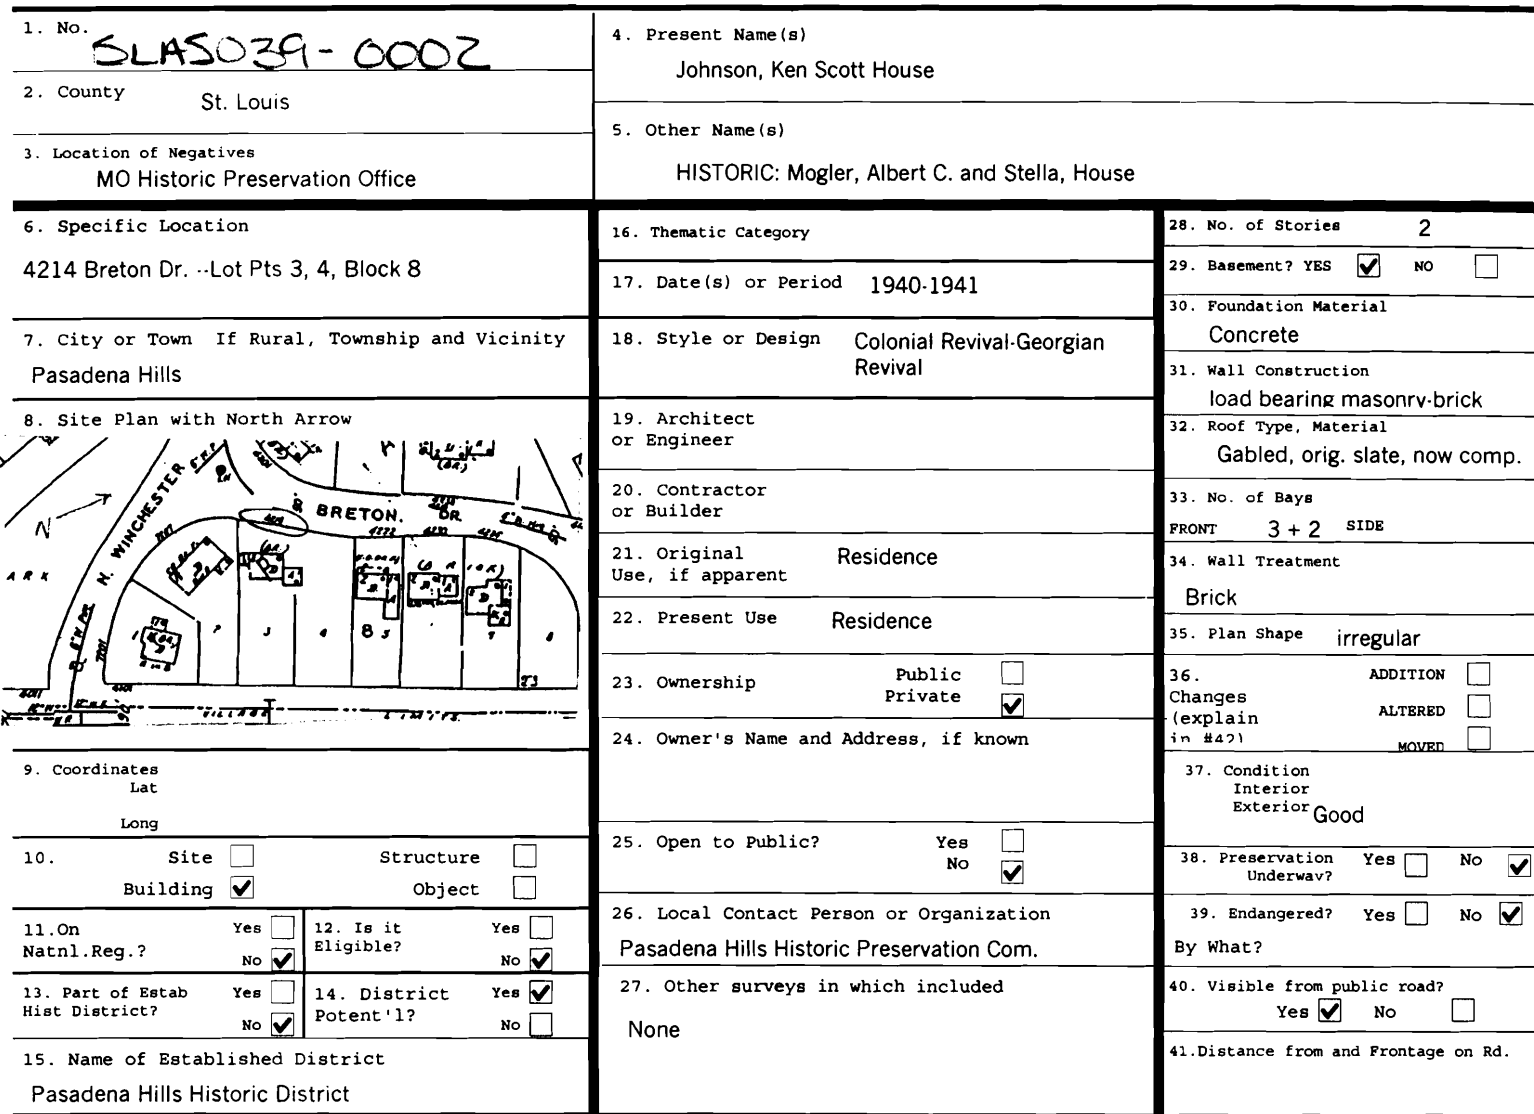 1. No. SLAS039-0002
2. County St. Louis
3. Location of Negatives
MO Historic Preservation Office
4. Present Name(s)
Johnson, Ken Scott House
5. Other Name(s)
HISTORIC: Mogler, Albert C. and Stella, House
6. Specific Location
4214 Breton Dr. --Lot Pts 3, 4, Block 8
7. City or Town If Rural, Township and Vicinity
Pasadena Hills
8. Site Plan with North Arrow
N
N. WINCHESTER
BRETON. DR.
ARK
4222
1
2
3
4
8 5
7
8
VILLAGE LIMITS.
9. Coordinates
Lat
Long
10. Site Structure
Building Object
11.On Natnl.Reg.? Yes
No
12. Is it Eligible? Yes
No
13. Part of Estab Hist District? Yes
No
14. District Potent'l? Yes
No
15. Name of Established District
Pasadena Hills Historic District
16. Thematic Category
17. Date(s) or Period 1940-1941
18. Style or Design Colonial Revival-Georgian
Revival
19. Architect
or Engineer
20. Contractor
or Builder
21. Original Residence
Use, if apparent
22. Present Use Residence
23. Ownership Public
Private
24. Owner's Name and Address, if known
25. Open to Public? Yes
No
26. Local Contact Person or Organization
Pasadena Hills Historic Preservation Com.
27. Other surveys in which included
None
28. No. of Stories 2
29. Basement? YES NO
30. Foundation Material
Concrete
31. Wall Construction
load bearing masonry-brick
32. Roof Type, Material
Gabled, orig. slate, now comp.
33. No. of Bays
FRONT 3 + 2 SIDE
34. Wall Treatment
Brick
35. Plan Shape irregular
36. ADDITION
Changes
(explain ALTERED
in #42)
MOVED
37. Condition
Interior
Exterior Good
38. Preservation Yes No
Underway?
39. Endangered? Yes No
By What?
40. Visible from public road?
Yes No
41.Distance from and Frontage on Rd.